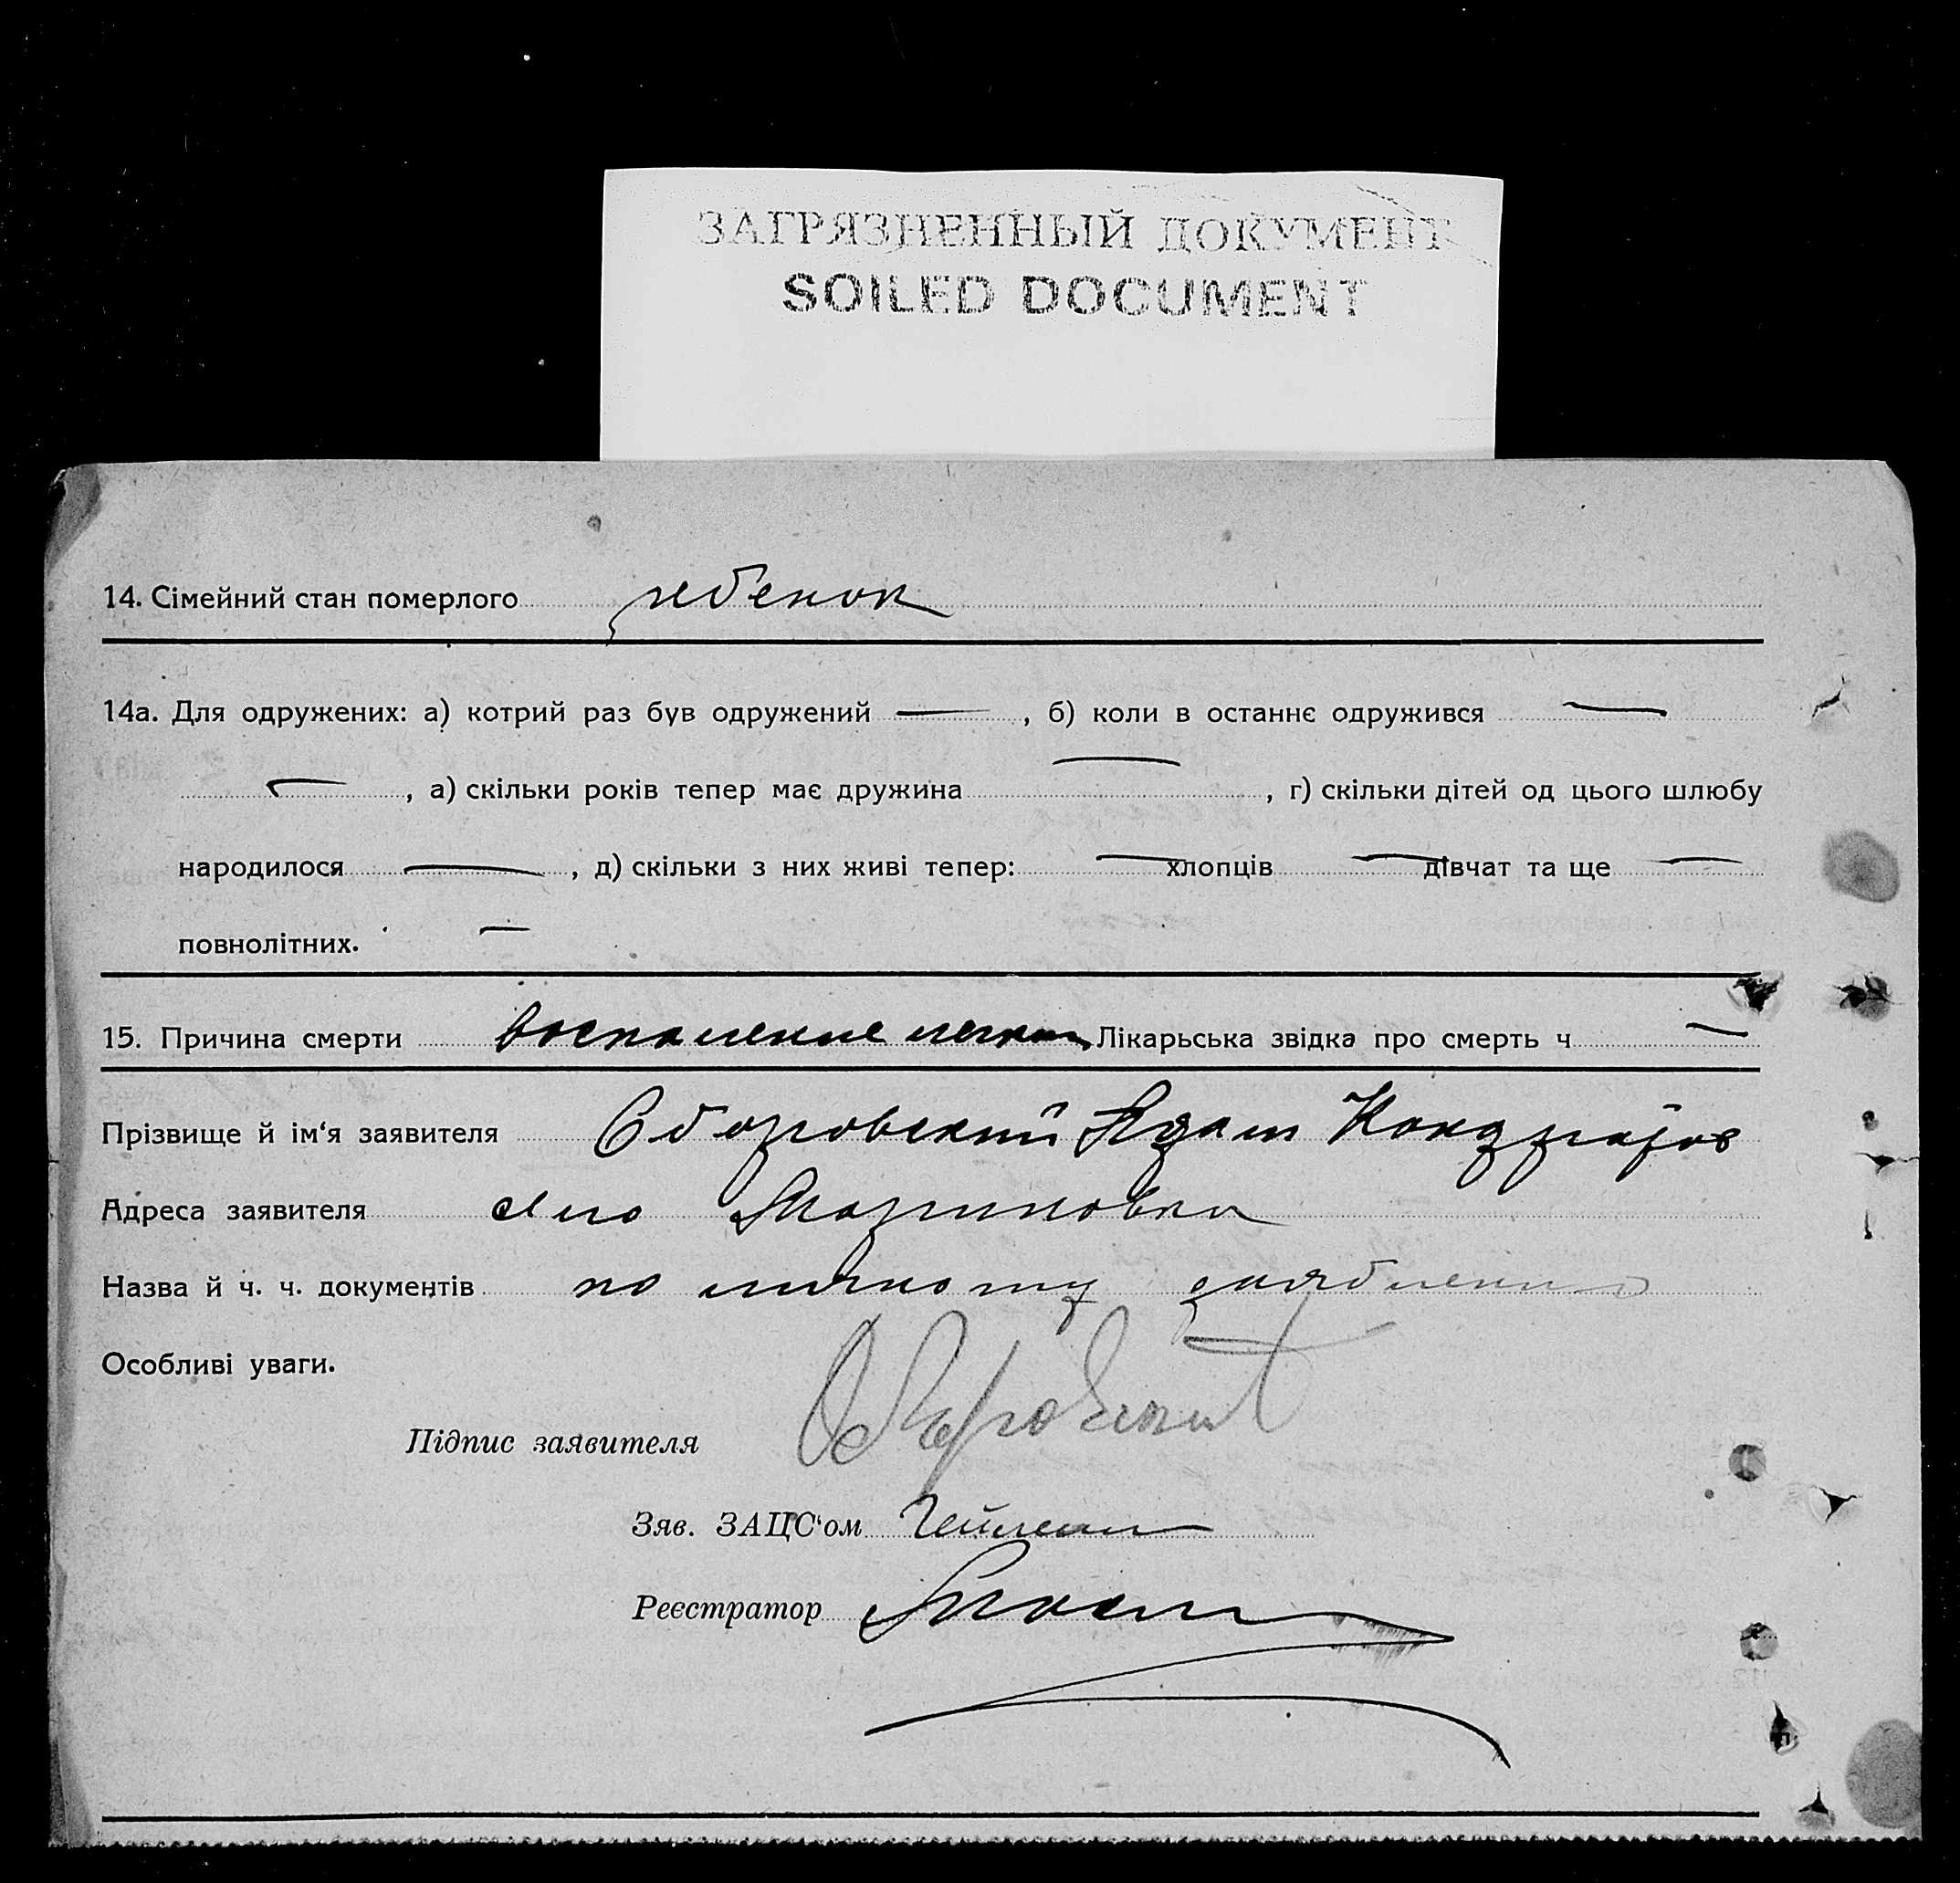 ЗАГРЯЗНЕННЫЙ ДОКУМЕНТ
SOILED DOCUMENT
14. Сімейний стан померлого ребенок
14а. Для одружених: а) котрий раз був одружений — , б) коли в останнє одружився —
— , а) скільки років тепер має дружина — , г) скільки дітей од цього шлюбу
народилося — , д) скільки з них живі тепер: — хлопців — дівчат та ще —
повнолітних. —
15. Причина смерти воспаление легких Лікарьська звідка про смерть ч —
Прізвище й ім‘я заявителя Сборовский Адам
Адреса заявителя село Мариновка
Назва й ч. ч. документів по личному заявлению
Особливі уваги.
Підпис заявителя
Зяв. ЗАЦС‘ом
Реєстратор